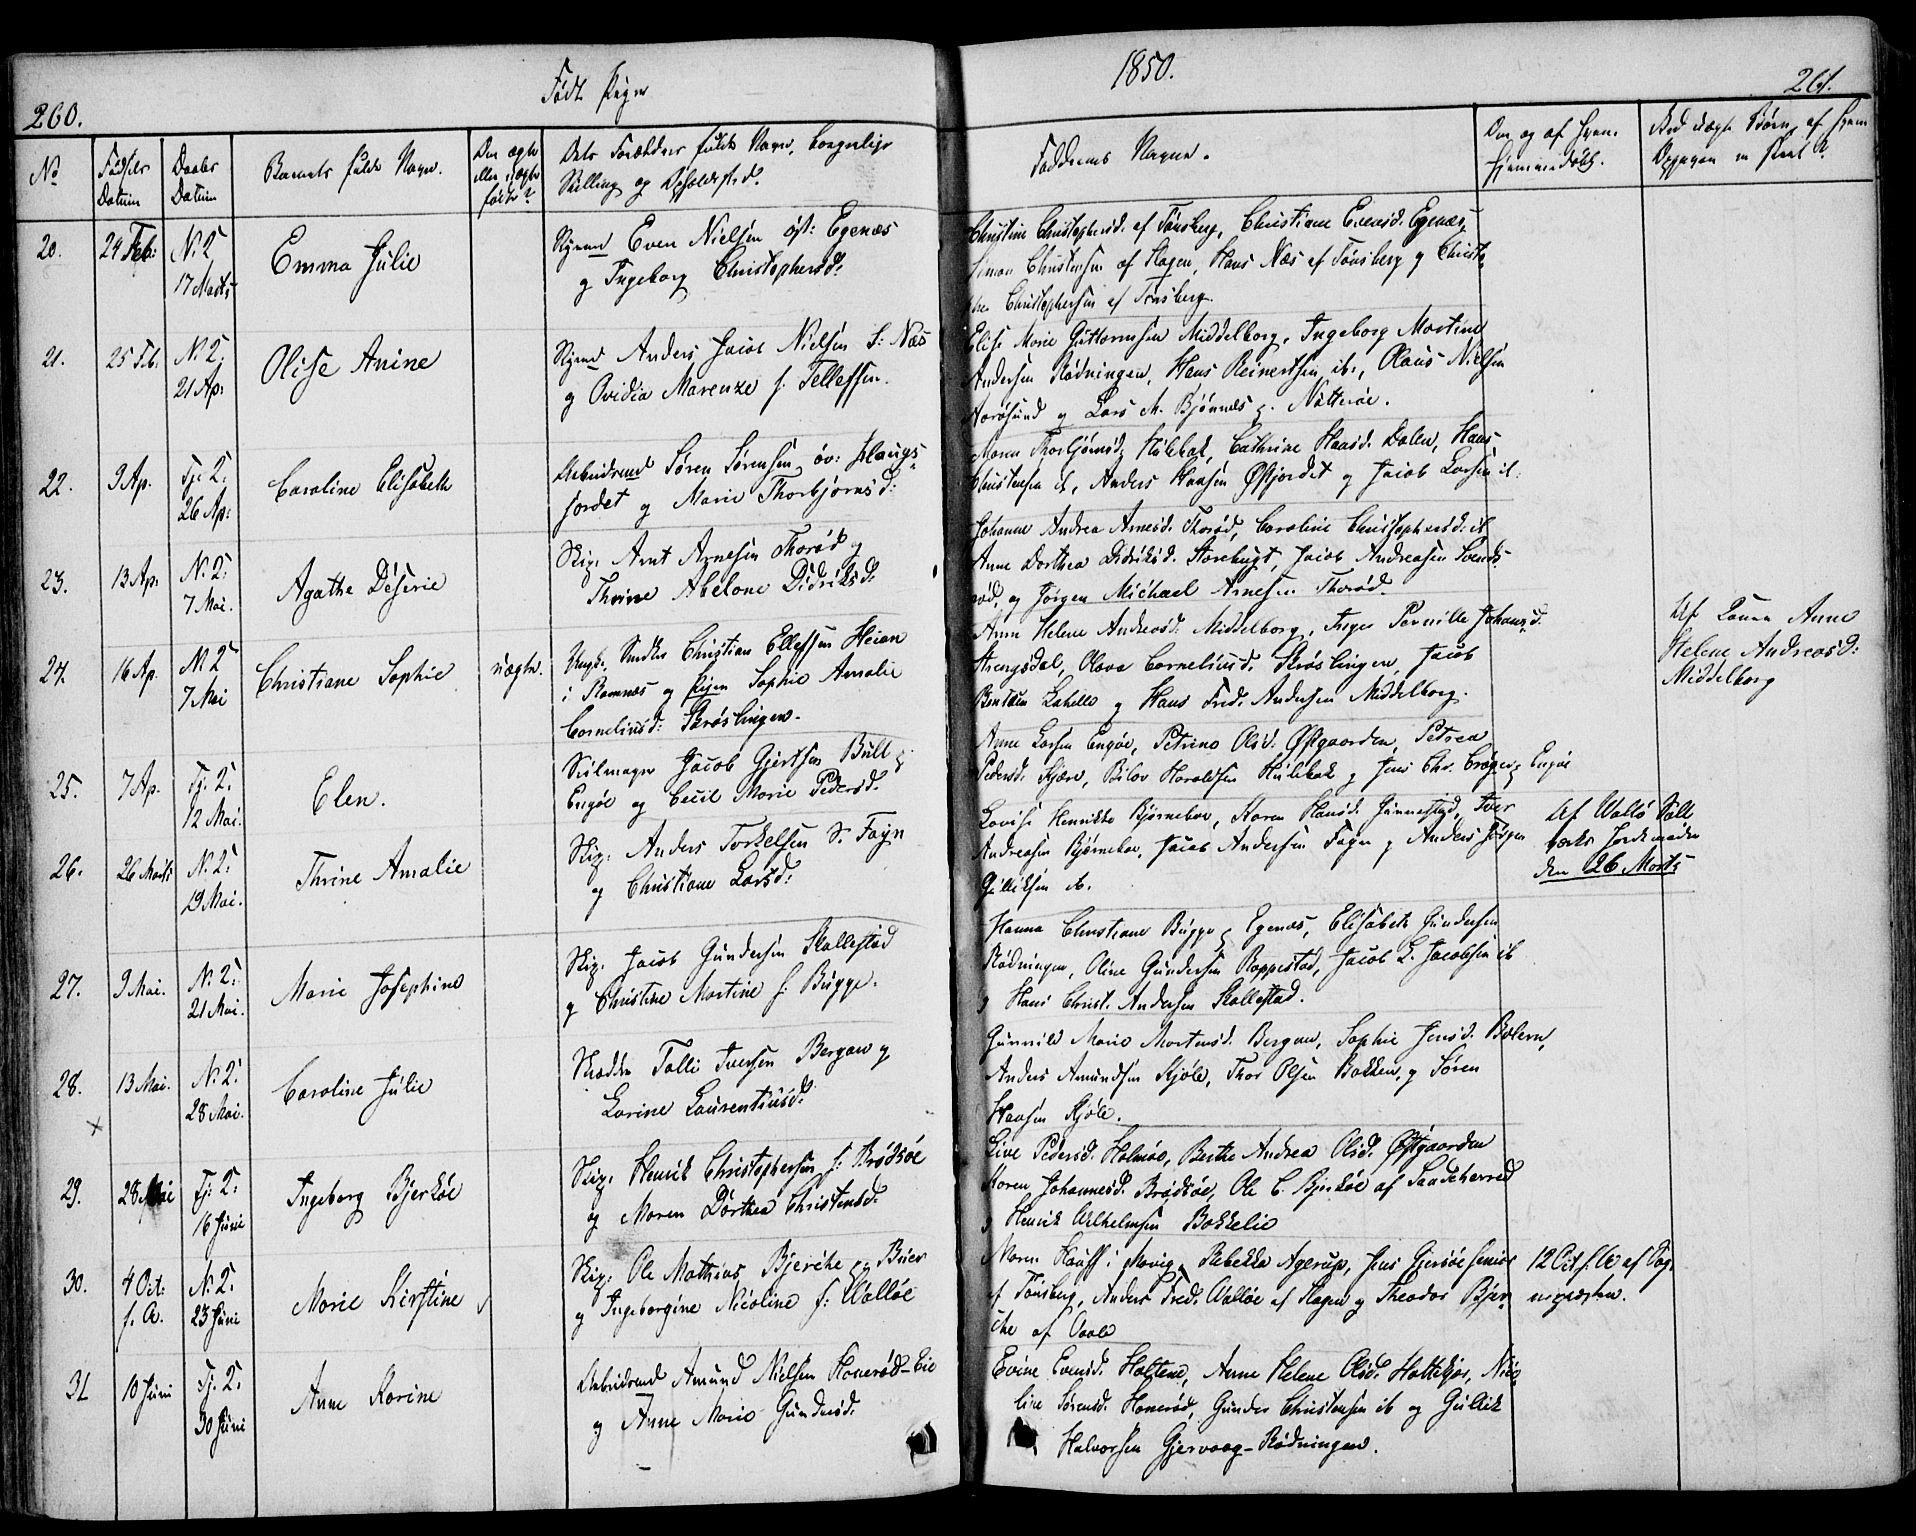 260.
Født Piger
1850.
261.
No
Fødsels Datum
Daabs Datum
Barnets fulde Navn.
Om ægte eller uægte født?
Dets Forældres fulde Navn, borgerlige
Stilling og Opholdssted.
Faddernes Navne.
Om og af hvem hjemmedøbt.
20.
24 Feb:
N: 2
17 Marts
Emma Julie
Even Nielsen øst: Egenæs
og Ingeborg Christophersd.
Christine Christophersd. af Tønsberg, Christiane Evensd. Egenæs,
Simon Christensen af Slagen, Hans Næs af Tønsberg og Christo
pher Christophersen af Tønsberg.
21.
25 Feb.
N: 2:
21 Ap:
Olise Anine
Anders Jacob Nielsen S: Næs
og Ovidia Marenze f. Tellefsen.
Elise Marie Guttormsen Middelborg, Ingeborg Martine
Andersen Rødningen, Hans Reinertsen ib:, Olaus Nielsen
Aarøsund og Lars M. Bjønnes p. Nøtterøe.
22.
9 Ap.
Tj: 2:
26 Ap:
Caroline Elisabeth
Arbeidsmd Søren Sørensen, øv: Haugs-
jordet og Marie Thorbjørnsd:
Maren Thorbjørnsd. Hulebak, Cathrine Hansd. Dalen, Hans
Christensen ib, Anders Hansen Østjordet og Jacob Larsen ib.
23.
13 Ap:
N: 2:
7 Mai.
Agathe Déserie
Skip. Arnt Arnesen Thorød og
Thrine Abelone Didriksd.
Johanne Andrea Arnesd. Thorød, Caroline Christophersd. ib
Anne Dorthea Didriksd. Storebugt, Jacob Andreasen Svends-
rød, og Jørgen Michael Arnesen Thorød.
24.
16 Ap.
N: 2
7 Mai
Christiane Sophie
uægte.
Ungk. Smed Christian Ellefsen Heian
i Ramnæs og Pigen Sophie Amalie
Corneliusd: Skrøslingen.
Anne Helene Andreasd. Middelborg, Inger Pernille Johansd.
Strengsdal, Olava Corneliusd. Skrøslingen, Jacob
Berntsen Lahelle og Hans Fred. Andersen Middelborg.
Af Laura Anne
Helene Andreasd:
Middelborg
25.
7 Ap.
Tj: 2:
12 Mai.
Elen.
Seilmager Jacob Gjertsen Bull p.
Engøe og Cecil Marie Pedersd.
Anne Larsen Engøe, Petrine Olsd. Østgaarden, Petrea
Pedersd. Kjære, Bilov Haraldsen Hulebak og Jens Chr. Crøger p. Engøe
26.
26 Marts
N: 2:
19 Mai.
Thrine Amalie
Skip. Anders Torkelsen S. Føyn
og Christiane Larsd:
Lovise Henrikke Bjørneboe, Karen Hansd. Gunnestad, Iver
Andreasen Bjørneboe, Jacob Andersen Føyn og Anders Jørgen
Gulliksen ib.
Af Vallø Salt
værks Jordemoder
den 26. Marts
27.
9 Mai.
N: 2:
21 Mai.
Marie Josephine
Skip. Jacob Gundersen Skallestad
og Christine Martine f. Bugge.
Hanna Christiane Bugge p. Egenæs, Elisabeth Gundersen
Rødningen, Oline Gundersen Roppestad, Jacob L. Jacobsen ib
og Hans Christ. Andersen Skallestad.
28.
×
13 Mai.
N: 2:
28 Mai.
Caroline Julie
Skrædder Tolli Iversen Bergan og
Larine Laurentiusd.
Gunnild Marie Mortensd. Bergan, Sophie Jensd. Bolern,
Anders Amundsen Kjøle, Thor Olsen Bakken, og Søren
Hansen Kjøle.
29.
28 Mai
Tj: 2:
16 Juni
Ingeborg Bjerkøe
Skip. Henrik Christophersen f: Brødsøe
og Maren Dorthea Christensd.
Live Pedersd. Holmøe, Berthe Andrea Olsd. Østgaarden
Karen Johannesd. Brødsøe, Ole C. Bjerkøe af Sandeherred
og Henrik Wilhelmsen Bakkelie
30.
4 Oct:
f. A.
N: 2:
23 Juni
Marie Kirstine
Skip. Ole Mathias Bjerche p. Buer
og Ingeborgine Nicoline f: Walløe
Maren Hauff i Narvig, Rebekka Agerup, Jens Gjersøe senior
af Tønsberg, Anders Fred. Walløe af Slagen og Theodor Bjer
che af Vaale
12 Oct. f. A. af Sog
nepræsten.
31
10 Juni
Tj. 2:
30 Juni
Anne Karine
Arbeidsmd Amund Nielsen Honerød-Eie
og Anne Marie Gundersd.
Evine Evensd. Holtene, Anne Helene Olsd. Holtekjær, Nico
line Sørensd. Honerød, Gunder Christensen ib og Gullik
Halvorsen Gjervaag-Rødningen.